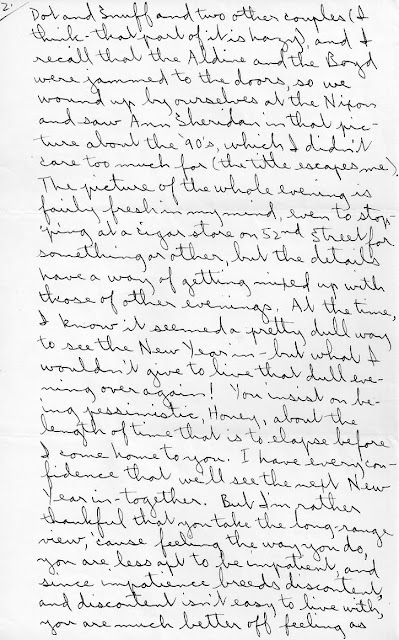 2.
Dot and Snuff and two other couples (I
think - that part of it is hazy), and I
recall that the Aldine and the Boyd
were jammed to the doors, so we
wound up by ourselves at the Nixon
and saw Ann Sheridan in that pic-
ture about the '90's, which I didn't
care too much for (the title escapes me).
The picture of the whole evening is
fairly fresh in my mind, even to stop-
ping at a cigar store on 52nd Street for
something or other, but the details
have a way of getting mixed up with
those of other evenings. At the time,
I know it seemed a pretty dull way
to see the New Year in - but what I
wouldn't give to live that dull eve-
ning over again! You insist on be-
ing pessimistic, Honey, about the
length of time that is to elapse before
I come home to you. I have every con-
fidence that we'll see the next New
Year in - together. But I'm rather
thankful that you take the long-range
view, 'cause feeling the way you do,
you are less apt to be impatient, and
since impatience breeds discontent,
and discontent isn't easy to live with,
you are much better off feeling as